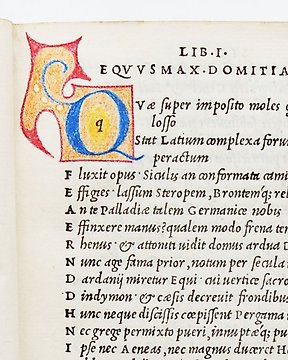 LIB·I·
EQVVS MAX·DOMITIA
Q
q
Væ super imposito moles g
losso
Stat Latium complexa foru
peractum
F luxit opus? Siculis an conformata cami
E ffigies·lassum Steropem, Brontemq; rel
A n te Palladiæ talem Germanice nobis
E ffinxere manus? qualem modo frena ten
R henus·& attoniti uidit domus ardua D
N unc age fama prior, notum per secula
D ardanij miretur Equi·cui uertice sacro
D indymon·& cæsis decreuit frondibus
H unc neque discissis cœpissent Pergama
N ec grege permixto pueri, innuptæq; pu
I pse nec Aeneas, nec magnus duceret H